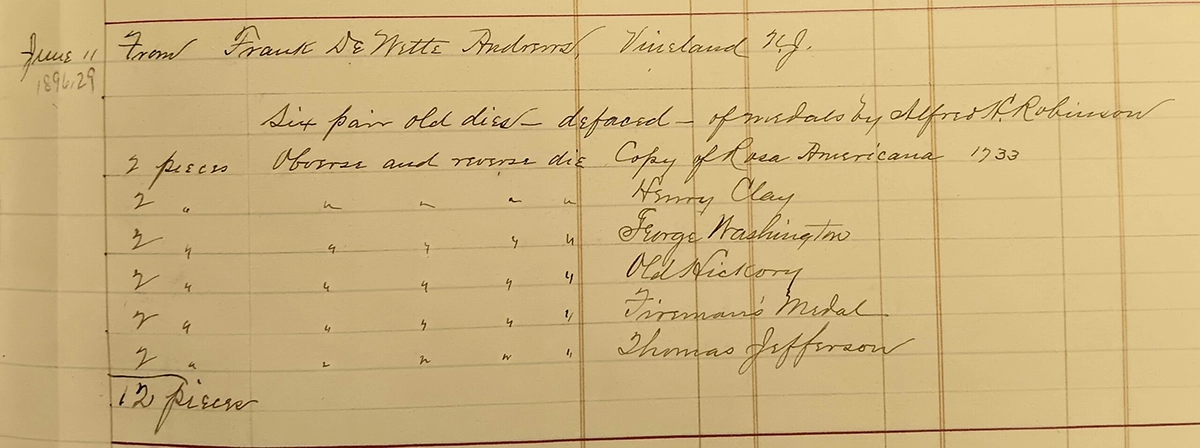 June 11 From Frank De Wette Andrews, Vineland N.J.
1896.29
Six pair old dies - defaced - of medals by Alfred S. Robinson
2 pieces Obverse and reverse die Copy of Rosa Americana 1733
2 " " " " " Henry Clay
2 " " " " " George Washington
2 " " " " " Old Hickory
2 " " " " " Fireman's Medal
2 " " " " " Thomas Jefferson
12 pieces